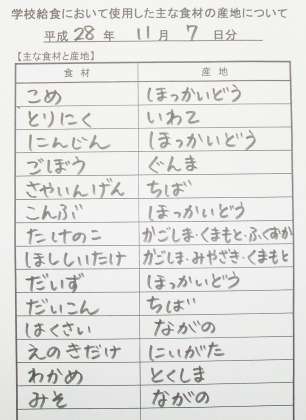 学校給食において使用した主な食材の産地について
平成28年 11月 7日分
【主な食材と産地】
食材 産地
こめ ほっかいどう
とりにく いわて
にんじん ほっかいどう
ごぼう ぐんま
さやいんげん ちば
こんぶ ほっかいどう
たけのこ かごしま・くまもと・ふくおか
ほししいたけ かごしま・みやざき・くまもと
だいず ほっかいどう
だいこん ちば
はくさい ながの
えのきだけ にいがた
わかめ とくしま
みそ ながの